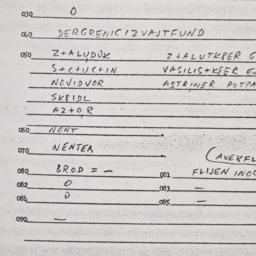 030 0
040 DERGRENIC IZVAJTFUND
050 Z+ALUDUK Z+ALUTKPER G
S+C+UC+IN VASILIS+KEER
NOVIDVOR ASTRINER POTPA
SKRIDL
AZ+OR
060 NONT
070 NENTER
(AVEKFL
080 BROD = – 081 FLIJEN INO
082 0 083 –
084 0 085 –
090 –